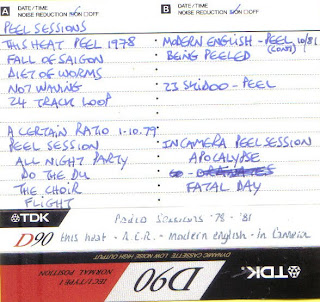 A DATE/TIME
NOISE REDUCTION ON OFF
PEEL SESSIONS
THIS HEAT PEEL 1978
FALL OF SAIGON
DIET OF WORMS
NOT WAVING
24 TRACK LOOP
A CERTAIN RATIO 1-10.79
PEEL SESSION
ALL NIGHT PARTY
DO THE DU
THE CHOIR
FLIGHT
B DATE/TIME
NOISE REDUCTION ON OFF
MODERN ENGLISH - PEEL 10/81
(CONT)
BEING PEELED
23 SKIDOO - PEEL
IN CAMERA PEEL SESSION
APOCALYPSE
FATAL DAY
TDK
Radio Sessions '78 - '81
D90 this heat - A.C.R. - Modern english - in Camera
DYNAMIC CASSETTE LOW NOISE HIGH OUTPUT
IEC I/TYPE I
NORMAL POSITION
D90
TDK